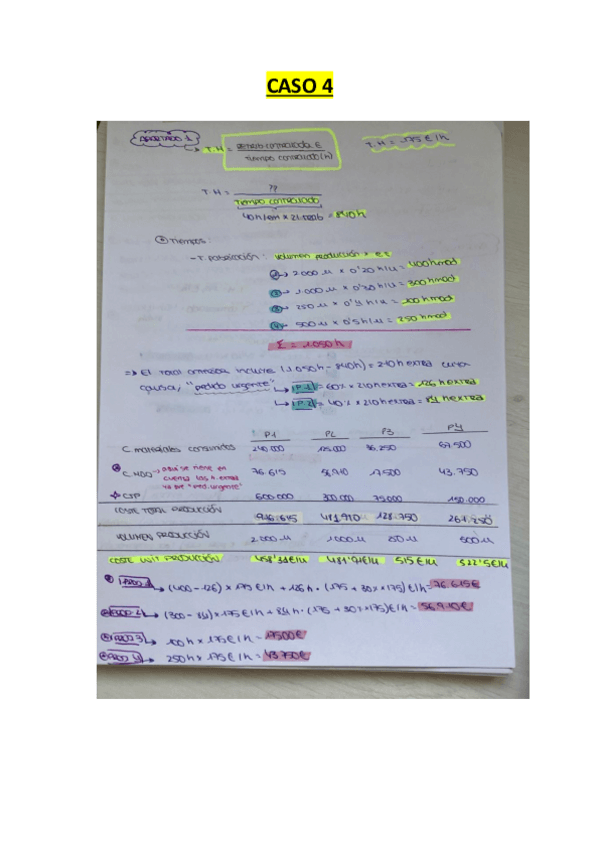 CASO 4
APARTADO 1
T.H = Retrib controlada € / Tiempo controlado (h)
T.H = 175 €/h
T.H = ?? / Tiempo controlado
40h/sem × 21 = 840 h
Tiempos:
- T. operación: volumen producción × e.t
1 → 2000 u × 0'20 h/u = 400 hmod
2 → 1.000 u × 0'30 h/u = 300 hmod
3 → 250 u × 0'4 h/u = 100 hmod
4 → 500 u × 0'5 h/u = 250 hmod
Σ = 1.050 h
⇒ El total incluye (1.050h - 840h) = 210 h extra cuya
causa, "pedido urgente" → P.1 = 60% × 210 h extra = 126 h extra
→ P.2 = 40% × 210 h extra = 84 h extra
P1 P2 P3 P4
C materiales consumidos 240.000 125.000 36.250 67.500
C. MOD → aquí se tiene en cuenta las h. extra ya que "ped. urgente" 76.615 56.910 17.500 43.750
CIP 600.000 300.000 75.000 150.000
COSTE TOTAL PRODUCCIÓN 916.615 481.910 128.750 261.250
VOLUMEN PRODUCCIÓN 2.000 u 1000 u 250 u 500 u
COSTE UNIT PRODUCCIÓN 458'31 €/u 481'91 €/u 515 €/u 522'5 €/u
PROD 1 → (400 - 126) × 175 €/h + 126 h · (175 + 30% × 175) €/h = 76.615 €
PROD 2 → (300 - 84) × 175 €/h + 84 h · (175 + 30% × 175) €/h = 56.910 €
PROD 3 → 100 h × 175 €/h = 17500 €
PROD 4 → 250 h × 175 €/h = 43.750 €